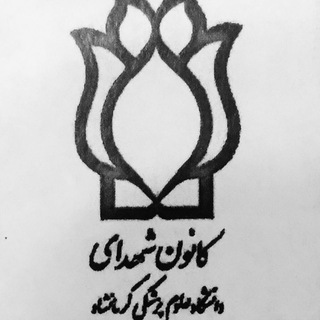 کانون شهدای
دانشگاه علوم پزشکی کرمانشاه